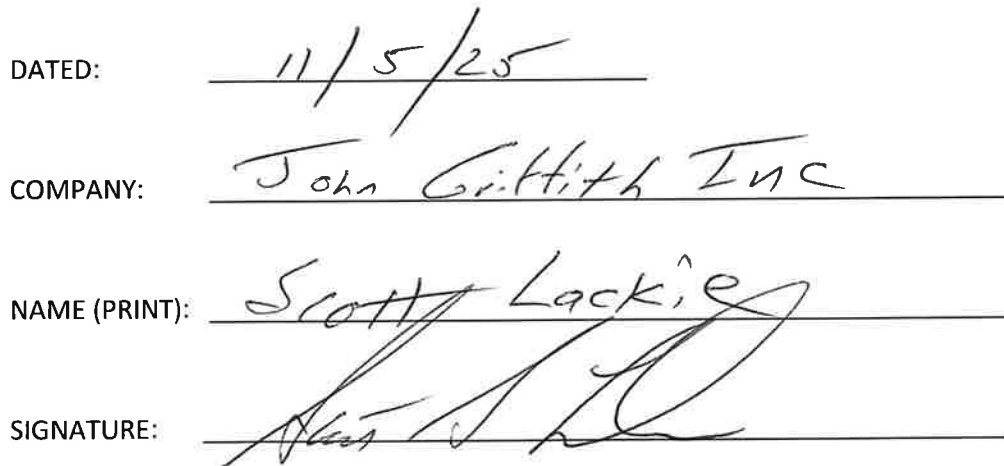 DATED: 11/5/25
COMPANY: John Griffith Inc
NAME (PRINT): Scott Lackie
SIGNATURE: